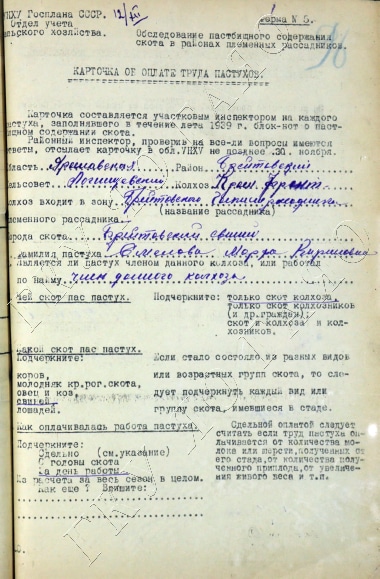 УНХУ Госплана СССР. 12/III
Отдел учета
льского хозяйства.
Форма № 5.
96
Обследование пастбищного содержания
скота в районах племенных рассадников.
КАРТОЧКА ОБ ОПЛАТЕ ТРУДА ПАСТУХОВ.
Карточка составляется участковым инспектором на каждого
пастуха, заполнявшего в течение лета 1939 г. блок-нот о паст-
бищном содержании скота.
Районный инспектор, проверив на все-ли вопросы имеются
ответы, отсылает карточку в обл.УНХУ не позднее .30. ноября.
область Ярославская Район Брейтовский
сельсовет Колхоз Крас. Фронт
Колхоз входит в зону Брейтовского
племенного рассадника (название рассадника)
порода скота Брейтовский свиньи
Фамилия пастуха Мария
Является ли пастух членом данного колхоза, или работал
по найму член данного колхоза
Чей скот пас пастух. Подчеркните: только скот колхоза,
только скот колхозников
(и др.граждан);
скот и колхоза и кол-
хозников.
Какой скот пас пастух.
Подчеркните:
коров,
молодняк кр.рог.скота,
овец и коз,
свиней,
лошадей.
Если стадо состояло из разных видов
или возрастных групп скота, то сле-
дует подчеркнуть каждый вид или
группу скота, имевшиеся в стаде.
Как оплачивалась работа пастуха.
Подчеркните:
Сдельно (см.указание)
С головы скота
За день работы
Из расчета за весь сезон в целом.
Как еще ? Впишите:
Сдельной оплатой следует
считать если труд пастуха оп-
лачивается от количества мо-
лока или шерсти,полученных от
его стада,от количества полу-
ченного приплода,от увеличе-
ния живого веса и т.п.